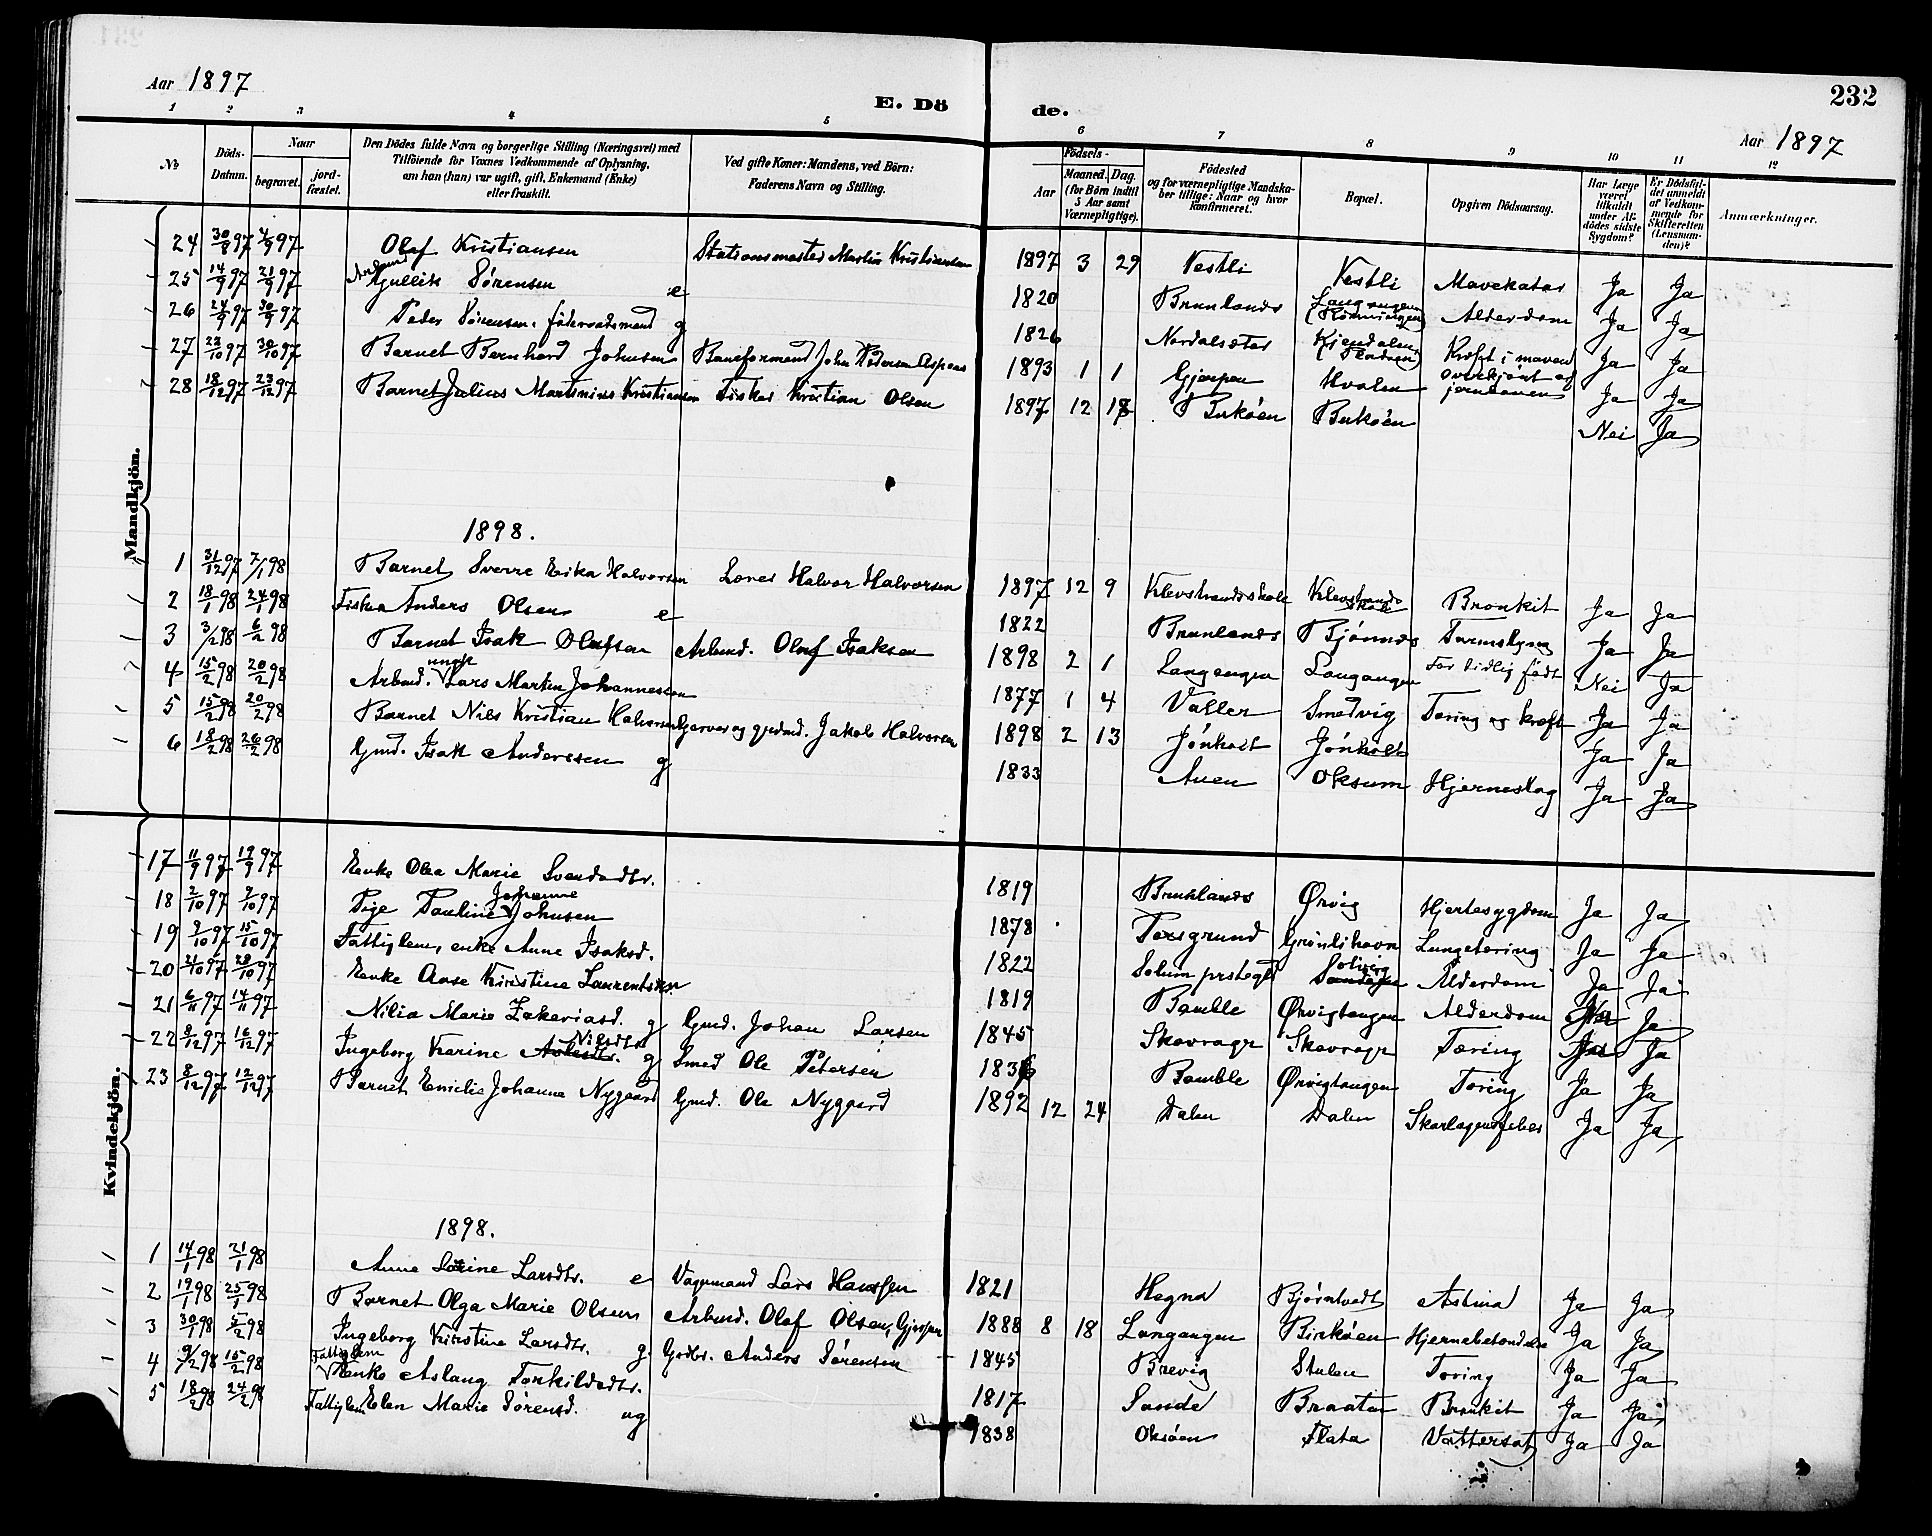 Aar 1897
E. Dö de.
232
Aar 1897
1 2 3 4 5 6 7 8 9 10 11 12
№ Döds-Datum. Naar begravet. jord-fæstet. Den Dödes fulde Navn og borgerlige Stilling (Næringsvei) med Tilföiende for Voxnes Vedkommende af Oplysning, om han (hun) var ugift, gift, Enkemand (Enke) eller fraskilt. Ved gifte Koner: Mandens, ved Börn: Faderens Navn og Stilling. Födsels- Aar Maaned. Dag. (for Börn indtil 5 Aar samt Værnepligtige). Födested og for værnepligtige Mandskaber tillige: Naar og hvor konfirmeret. Bopæl. Opgiven Dödsaarsag. Har Læge været tilkaldt under Afdödes sidste Sygdom? Er Dödsfaldet anmeldt af Vedkommende for Skifteretten (Lensmanden)? Anmærkninger.
Mandkjön.
24 30/8 97 4/9 97 Olaf Kristiansen Stationsmester Martin Kristiansen 1897 3 29 Vestli Vestli Mavekatar Ja Ja
25 14/9 97 21/9 97 Gjullik Sørensen e 1820 Brunlanæs Langangen Alderdom Ja Ja
26 24/9 97 30/9 97 Peder Sørensen, föderaadsmand g 1826 Nordalsæter Kjendalen Kræft i maven Ja Ja
27 23/10 97 30/10 97 Barnet Bernhard Johnsen Baneformand John Pedersen Aspaas 1893 1 1 Gjerpen Hvalen overkjört af jernbanen Ja Ja
28 18/12 97 23/12 97 Barnet Julius Martinius Kristiansen Fisker Kristian Olsen 1897 12 18 Birköen Birköen Nei Ja
1898.
1 31/12 97 7/1 98 Barnet Sverre Erika Halvorsen Lærer Halvor Halvorsen 1897 12 9 Klevstrandsskole Klevstrands skole Bronkit Ja Ja
2 18/1 98 24/1 98 Fisker Anders Olsen e 1822 Brunlanæs Bjönnes Ja Ja
3 3/2 98 6/2 98 Barnet Isak Olafsen Arbmd. Olaf Isaksen 1898 2 1 Langangen Langangen For tidlig födt Nei Ja
4 15/2 98 20/2 98 Arbmd. ungk Lars Martin Johannessen 1877 1 4 Valler Smedvig Tæring og kræft Ja Ja
5 15/2 98 20/2 98 Barnet Nils Kristian Halvorsen Garver og grdmd. Jakob Halvorsen 1898 2 13 Jönholt Jönholt Ja Ja
6 18/2 98 26/2 98 Gmd. Isak Anderssen g 1833 Auen Oksum Hjerneslag Ja Ja
Kvindekjön.
17 11/9 97 19/9 97 Enke Olea Marie Svendsdtr. 1819 Brunlanæs Ørvig Hjertesygdom Ja Ja
18 2/10 97 9/10 97 Pige Pauline Johanne Johnsen 1878 Porsgrund Grönlihavn Lungetæring Ja Ja
19 9/10 97 15/10 97 Fattiglem, enke Anne Isaksd. 1822 Solum prstegjd Solvig Alderdom Ja Ja
20 21/10 97 28/10 97 Enke Anne Kirstine Laurentsdtr. 1819 Bamble Ørvigtangen Alderdom Nei Ja
21 6/11 97 14/11 97 Nilia Marie Zakeriasd. g Gmd. Johan Larsen 1845 Skavrager Skavrager Tæring Ja
22 9/12 97 16/12 97 Ingeborg Karine Nilsdtr. g Smed Ole Petersen 1836 Bamble Ørvigtangen Tæring Ja Ja
23 8/12 97 12/12 97 Barnet Emilie Johanna Nygaard Gmd. Ole Nygaard 1892 12 24 Dalen Dalen Skarlagensfeber Ja Ja
1898.
1 14/1 98 21/1 98 Anne Larine Larsdtr. e Vognmand Lars Hanssen 1821 Hegna Björntvedt Astma Ja Ja
2 19/1 98 25/1 98 Barnet Olga Marie Olsen Arbmd. Olaf Olsen, Gjerpen 1888 8 18 Langangen Birköen Hjernebetændelse Ja Ja
3 30/1 98 5/2 98 Ingeborg Kirstine Larsdtr. g Grdbr. Anders Sörensen 1845 Brevig Stulen Tæring Ja Ja
4 9/2 98 15/2 98 Fattiglem Enke Aslaug Torkildsdtr. 1817 Sande Braaten Bronkit Ja Ja
5 18/2 98 24/2 98 Fattiglem Elen Marie Sörensd. ug 1838 Oksöen Flata Vattersot Ja Ja